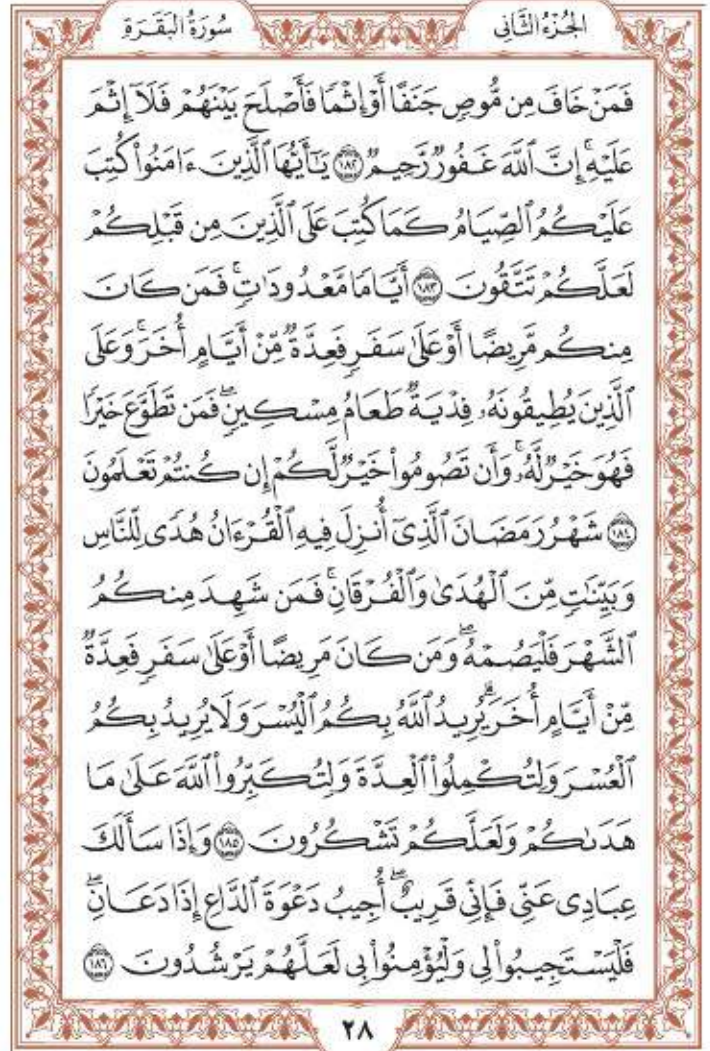 الجُزْءُ الثَّانِي سُورَةُ البَقَرَةِ
فَمَنْ خَافَ مِن مُّوصٍ جَنَفًا أَوْ إِثْمًا فَأَصْلَحَ بَيْنَهُمْ فَلَآ إِثْمَ
عَلَيْهِۚ إِنَّ ٱللَّهَ غَفُورٌ رَّحِيمٌ ١٨٢ يَـٰٓأَيُّهَا ٱلَّذِينَ ءَامَنُوا۟ كُتِبَ
عَلَيْكُمُ ٱلصِّيَامُ كَمَا كُتِبَ عَلَى ٱلَّذِينَ مِن قَبْلِكُمْ
لَعَلَّكُمْ تَتَّقُونَ ١٨٣ أَيَّامًا مَّعْدُودَٰتٍۚ فَمَن كَانَ
مِنكُم مَّرِيضًا أَوْ عَلَىٰ سَفَرٍ فَعِدَّةٌ مِّنْ أَيَّامٍ أُخَرَۚ وَعَلَى
ٱلَّذِينَ يُطِيقُونَهُۥ فِدْيَةٌ طَعَامُ مِسْكِينٍۖ فَمَن تَطَوَّعَ خَيْرًا
فَهُوَ خَيْرٌ لَّهُۥۚ وَأَن تَصُومُوا۟ خَيْرٌ لَّكُمْ إِن كُنتُمْ تَعْلَمُونَ
١٨٤ شَهْرُ رَمَضَانَ ٱلَّذِىٓ أُنزِلَ فِيهِ ٱلْقُرْءَانُ هُدًى لِّلنَّاسِ
وَبَيِّنَـٰتٍ مِّنَ ٱلْهُدَىٰ وَٱلْفُرْقَانِۚ فَمَن شَهِدَ مِنكُمُ
ٱلشَّهْرَ فَلْيَصُمْهُۖ وَمَن كَانَ مَرِيضًا أَوْ عَلَىٰ سَفَرٍ فَعِدَّةٌ
مِّنْ أَيَّامٍ أُخَرَۗ يُرِيدُ ٱللَّهُ بِكُمُ ٱلْيُسْرَ وَلَا يُرِيدُ بِكُمُ
ٱلْعُسْرَ وَلِتُكْمِلُوا۟ ٱلْعِدَّةَ وَلِتُكَبِّرُوا۟ ٱللَّهَ عَلَىٰ مَا
هَدَىٰكُمْ وَلَعَلَّكُمْ تَشْكُرُونَ ١٨٥ وَإِذَا سَأَلَكَ
عِبَادِى عَنِّى فَإِنِّى قَرِيبٌۖ أُجِيبُ دَعْوَةَ ٱلدَّاعِ إِذَا دَعَانِۖ
فَلْيَسْتَجِيبُوا۟ لِى وَلْيُؤْمِنُوا۟ بِى لَعَلَّهُمْ يَرْشُدُونَ ١٨٦
٢٨